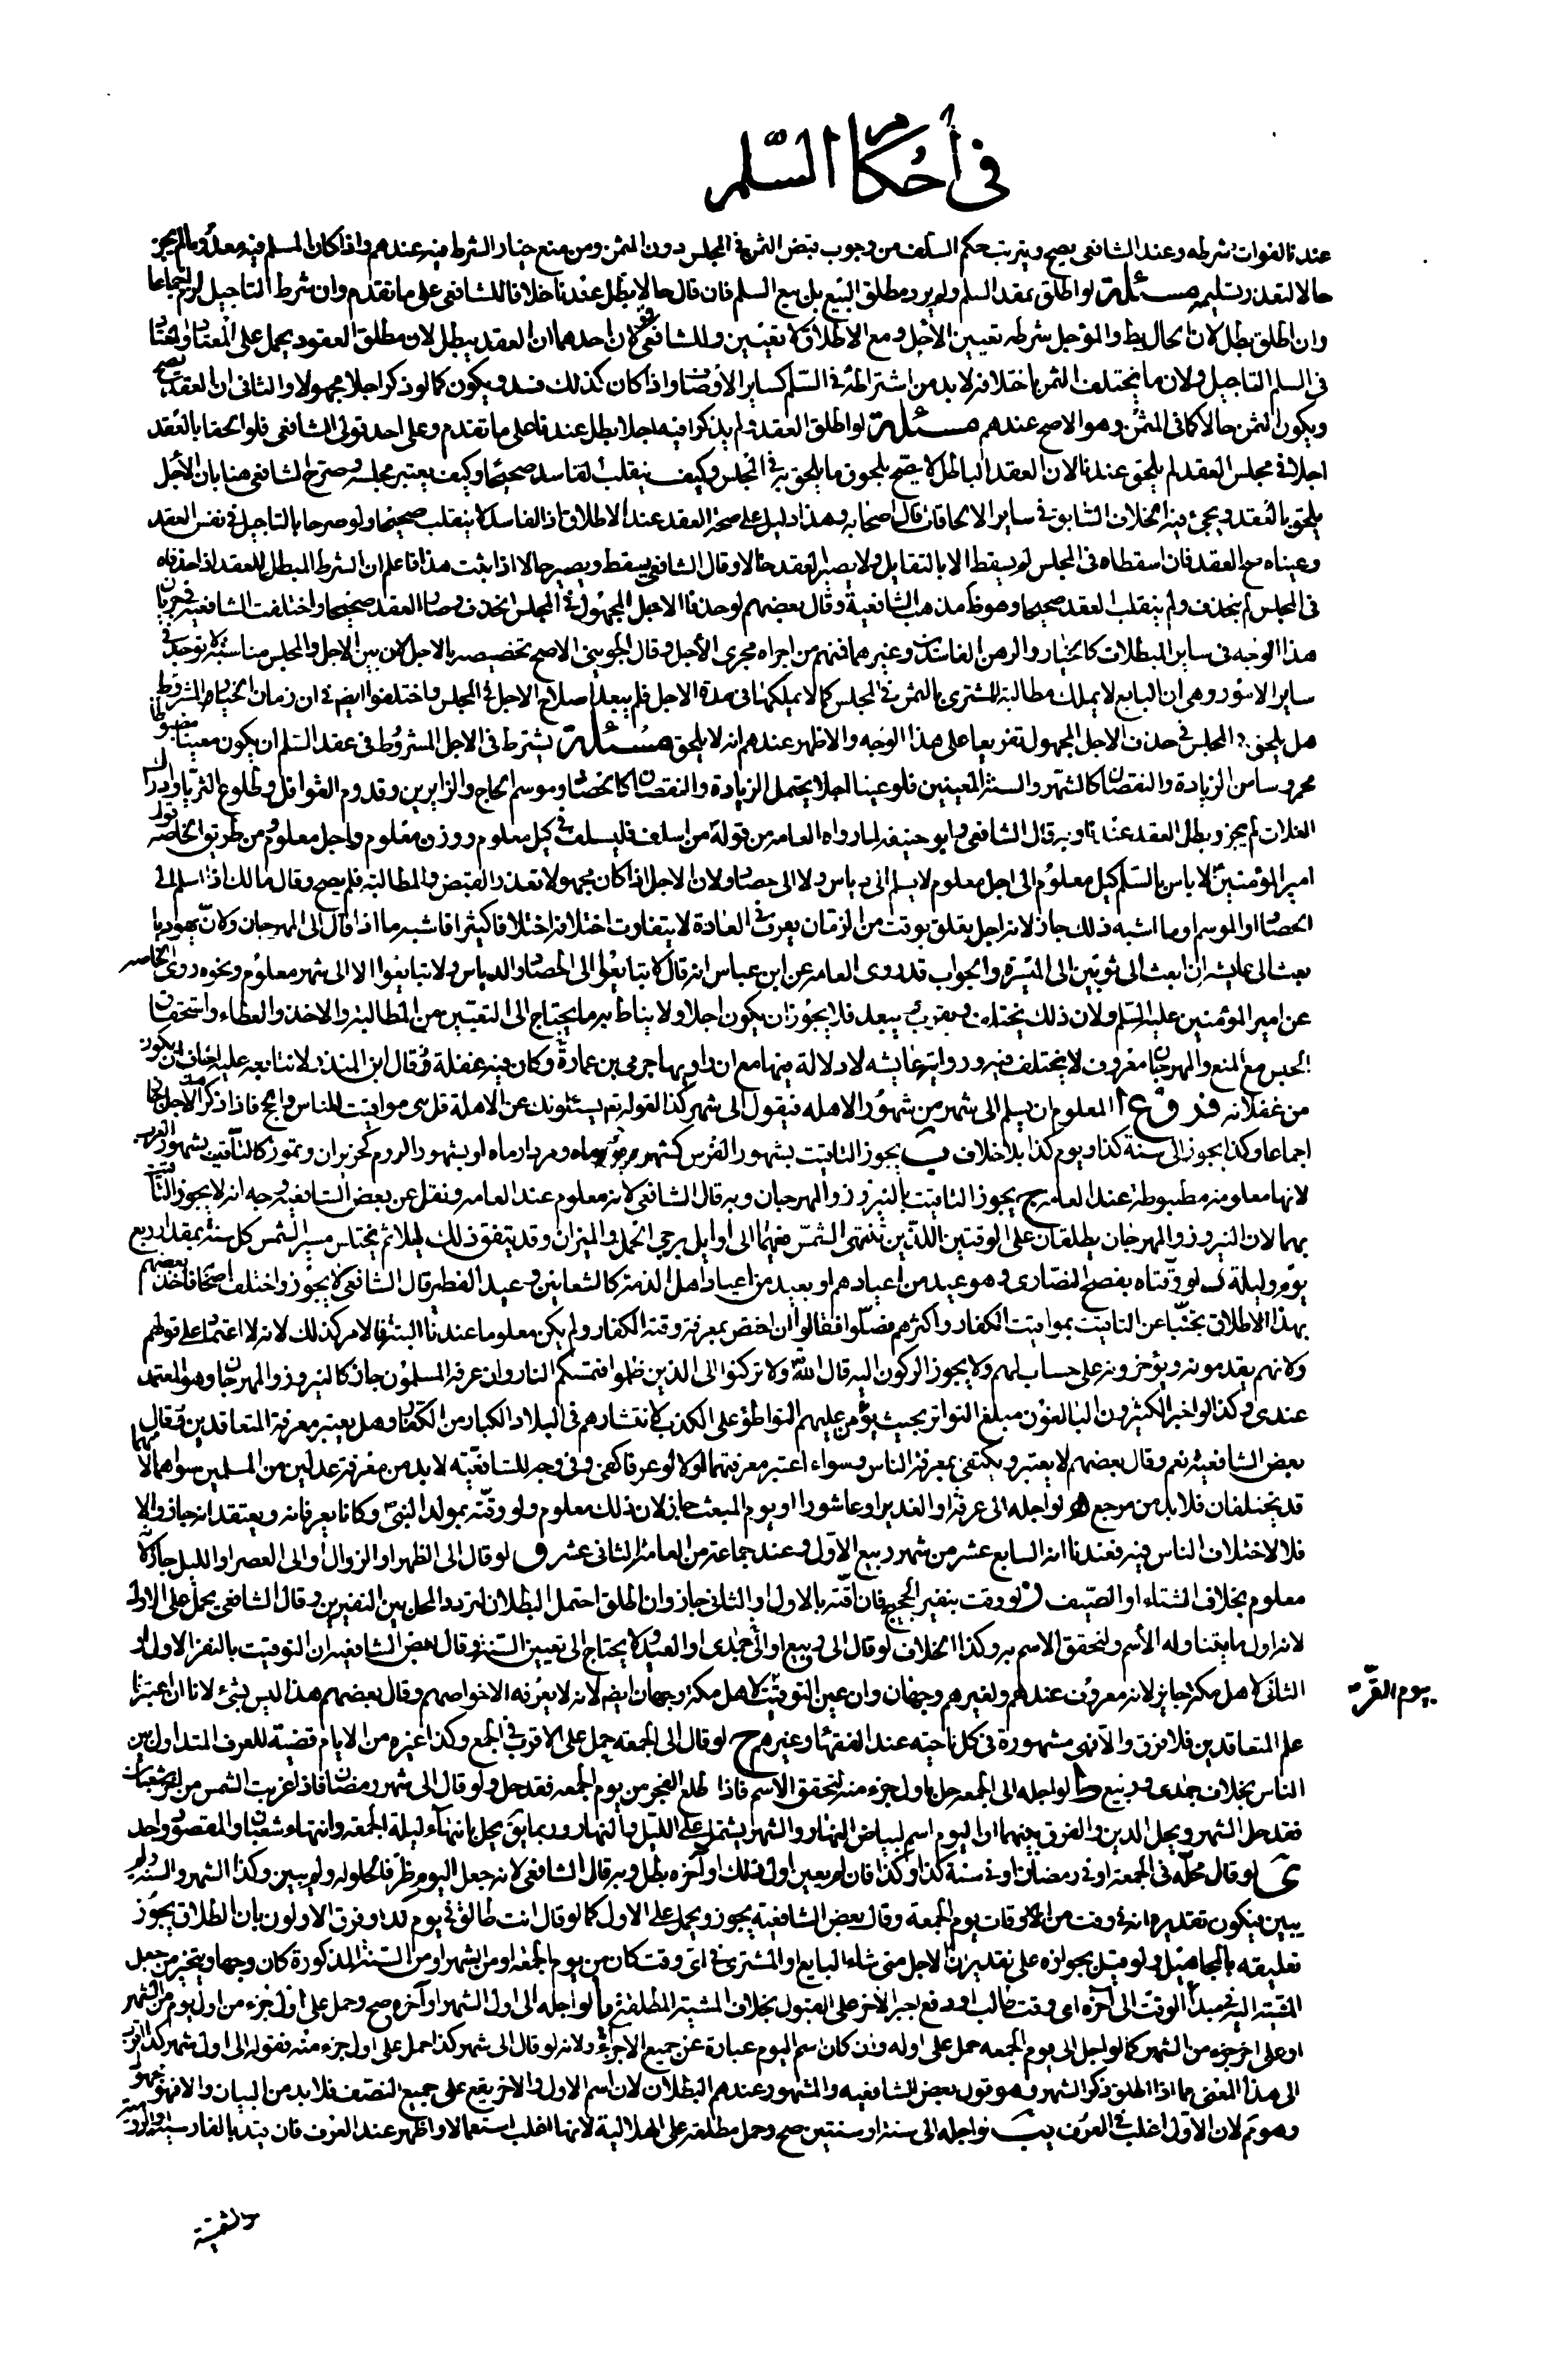 في أحكام السّلم
عندنا لفوات شرطه وعند الشافعي يصح ويترتب حكم السلف من وجوب قبض الثمن في المجلس دون المثمن ومن منع خيار الشرط فيه عندهم واذا كان المسلم فيه معدوما لم يجز
حالا لتعذر تسليمه مسئلة لو اطلق بعقد السلم ولم يرد مطلق البيع بل بيع السلم فان قال حالا بطل عندنا خلافا للشافعي على ما تقدم وان شرط التاجيل لزم اجماعا
وان اطلق بطل لان الحال يبطل والمؤجل شرطه تعيين الاجل ومع الاطلاق لا تعيين وللشافعي قولان احدهما ان العقد يبطل لان مطلق العقود يحمل على المعتاد والمعتاد
في السلم التاجيل ولان ما يختلف الثمن باختلافه لا بد من اشتراطه في السّلم كساير الأوصاف واذا كان كذلك فسد ويكون كما لو ذكر اجلا مجهولا والثاني ان العقد يصح
ويكون الثمن حالا كما في المثمن وهو الاصح عندهم مسئلة لو اطلق العقد ولم يذكرا فيه اجلا بطل عندنا على ما تقدم وعلى احد قولي الشافعي فلو الحقا بالعقد
اجلا في مجلس العقد لم يلحق عندنا لان العقد الباطل لا يصح بلحوق ما يلحق به في المجلس وكيف ينقلب الفاسد صحيحا وكيف يعتبر مجلسه وصرح الشافعي هنا بان الأجل
يلحق بالعقد ويجئ فيه الخلاف السابق في ساير الالحاقات قال اصحابه وهذا دليل على صحة العقد عند الاطلاق اذ الفاسد لا ينقلب صحيحا ولو صرحا بالتاجيل في نفس العقد
وعيناه صح العقد فان اسقطاه في المجلس لم يسقط الا بالتقايل ولا يصير العقد حالا وقال الشافعي يسقط ويصير حالا اذا ثبت هذا فاعلم ان الشرط المبطل للعقد اذا حذفاه
في المجلس لم ينحذف ولم ينقلب العقد صحيحا وهو ظ مذهب الشافعية وقال بعضهم لو حذفا الاجل المجهول في المجلس انحذف وصار العقد صحيحا واختلفت الشافعية في جريان
هذا الوجه في ساير المبطلات كالخيار والرهن الفاسدين وغيرهما فمنهم من اجراه مجرى الأجل وقال الجويني الاصح تخصيصه بالاجل لان بين الاجل والمجلس مناسبة لا توجد في
ساير الامور وهي ان البايع لا يملك مطالبة المشتري بالثمن في المجلس كما لا يملكها في مدة الاجل فلم يبعد اصلاح الاجل في المجلس واختلفوا ايض في ان زمان الخيار المشروط
هل يلحق بالمجلس في حذف الاجل المجهول تفريعا على هذا الوجه والاظهر عندهم انه لا يلحق مسئلة يشترط في الاجل المشروط في عقد السّلم ان يكون معينا مضبوطا
محروسا من الزيادة والنقصان كالشهر والسنة المعينين فلو عينا اجلا يحتمل الزيادة والنقصان كالحصاد وموسم الحاج والزايرين وقدوم القوافل وطلوع الثريا وادراك
الغلات لم يجز وبطل العقد عندنا وبه قال الشافعي وابو حنيفه لما رواه العامه من قوله من اسلف فليسلف في كيل معلوم ووزن معلوم واجل معلوم ومن طريق الخاصه قول
امير المؤمنين لا باس بالسّلم كيل معلوم الى اجل معلوم لا يسلم الى دياس ولا الى حصاد ولان الاجل اذا كان مجهولا تعذر القبض والمطالبة فلم يصح وقال مالك اذا اسلم الى
الحصاد او الموسم وما اشبه ذلك جاز لانه اجل يتعلق بوقت من الزمان يعرف في العادة لا يتفاوت اختلافه اختلافا كثيرا فاشبه ما اذا قال الى المهرجان ولان يهوديا
بعث الى عايشه ان ابعث الى ثوبين الى الميسرة والجواب قد روى العامه عن ابن عباس انه قال لا تبايعوا الى الحصاد والدياس ولا تبايعوا الا الى شهر معلوم ونحوه روى الخاصه
عن امير المؤمنين عليه السّلم ولان ذلك يختلف ويقرب ويبعد فلا يجوز ان يكون اجلا ولا يناط به ما يحتاج الى التعيين من المطالبة والاخذ والعطاء واستحقاق
الحبس مع المنع والمهرجان معروف لا يختلف فيه ورواية عايشه لا دلالة فيها مع ان راويها حرمي بن عمارة وكان فيه غفلة وقال ابن المنذر لا نتابعه عليه اخاف ان يكون
من غفلاته فروع أ المعلوم ان يسلم الى شهر من شهور الاهله فيقول الى شهر كذا لقوله تع يسئلونك عن الاهلة قل هي مواقيت للناس والحج فاذا ذكر الاجل
اجماعا وكذا يجوز الى سنة كذا ويوم كذا بلا خلاف ب يجوز التاقيت بشهور الفرس كشهر ماه ومردادماه او بشهور الروم كحزيران وتموز كالتاقيت بشهور العرب
لانها معلومة مضبوطة عند العامه ج يجوز التاقيت بالنيروز والمهرجان وبه قال الشافعي لانه معلوم عند العامه ونقل عن بعض الشافعية وجه انه لا يجوز التاقيت
بهما لان النيروز والمهرجان يطلقان على الوقتين اللذين تنتهي الشمس فيهما الى اوايل برجي الحمل والميزان وقد يتفق ذلك ليلا ثم يختلس مسير الشمس كل سنة بمقدار ربع
يوم وليلة د لو وقّتاه بفصح النصارى وهو عيد من اعيادهم او بعيد من اعياد اهل الذمة كالشعانين وعيد الفطير قال الشافعي لا يجوز واختلف اصحابه فاخذ بعضهم
بهذا الاطلاق تجنّبا عن التاقيت بمواقيت الكفار واكثرهم فصّلوا فقالوا ان اختص بمعرفة وقته الكفار ولم يكن معلوما عندنا البتة فالامر كذلك لانه لا اعتماد على قولهم
ولانهم يقدمونه ويؤخرونه على حساب لهم ولا يجوز الركون اليه قال الله ولا تركنوا الى الذين ظلموا فتمسكم النار وان عرفه المسلمون جاز كالنيروز والمهرجان وهو المعتمد
عندي وكذا لو اخبر الكثيرون البالغون مبلغ التواتر بحيث يؤمن عليهم التواطؤ على الكذب لانتشارهم في البلاد الكبار من الكفار وهل يعتبر معرفة المتعاقدين فقال
بعض الشافعية نعم وقال بعضهم لا يعتبر ويكتفى بمعرفة الناس وسواء اعتبر معرفتهما او لا لو عرفا كفى وفي وجه للشافعيّه لا بد من معرفة عدلين من المسلمين سواهما لانهما
قد يختلفان فلا بد من مرجع ه لو اجله الى عرفة او الغدير او عاشورا او يوم المبعث جاز لان ذلك معلوم ولو وقته بمولد النبي وكانا يعرفانه ويعتقد انه جاز والا
فلا لاختلاف الناس فيه فعندنا انه السابع عشر من شهر ربيع الاوّل وعند جماعة من العامة الثاني عشر و لو قال الى الظهر او الزوال او الى العصر او الليل جاز لانه
معلوم بخلاف الشتاء او الصّيف ز لو وقت بنفير الحجيج فان اقّته بالاول او الثاني جاز وان اطلق احتمل البطلان لتردد المحل بين النفرين وقال الشافعي يحمل على الاول
لانه اول ما يتناوله الأسم ولتحقق الاسم به وكذا الخلاف لو قال الى ربيع او الى جمادى او العيد ولا يحتاج الى تعيين السّنة وقال بعض الشافعيه ان التوقيت بالنفر الاول او
الثاني لاهل مكة جايز لانه معروف عندهم ولغيرهم وجهان وان عين التوقيت لاهل مكة وجهان ايض لانه لا يعرفه الا خواصهم وقال بعضهم هذا ليس بشئ لانا ان اعتبرنا
يوم القرّ
علم المتعاقدين فلا فرق والا فهي مشهورة في كل ناحيته عند الفقهاء وغيرهم ح لو قال الى الجمعه حمل على الاقرب في الجمع وكذا غيره من الايام قضية للعرف المتداول بين
الناس بخلاف جمادى وربيع ط لو اجله الى الجمعه حل باول جزء منه لتحقق الاسم فاذا طلع الفجر من يوم الجمعه فقد حل ولو قال الى شهر رمضان فاذا غربت الشمس من اخر شعبان
فقد حل الشهر ويحل الدين والفرق بينهما ان اليوم اسم لبياض النهار والشهر يشتمل على الليل والنهار وربما يق يحل بانتهاء ليلة الجمعه وانتهاء شعبان والمقصود واحد
ى لو قال محلّه في الجمعة او في رمضان او في سنة كذا وكذا فان لم يعين اول ذلك او آخره بطل وبه قال الشافعي لانه جعل اليوم ظرفا لحلوله ولم يبين وكذا الشهر والسنه ولم
يبين فيكون تقديره انه في وقت من الاوقات يوم الجمعة وقال بعض الشافعيه يجوز ويحمل على الاول كما لو قال انت طالق في يوم كذا وفرق الاولون بان الطلاق يجوز
تعليقه بالمجاهيل ولو قيل بجوازه على تقدير ان الاجل متى شاء البايع او المشتري في اى وقت كان من يوم الجمعه او من الشهر او من السّنة المذكورة كان وجها ويتخير من جعل
المشية اليه في مبدأ الوقت الى آخره اى وقت طالب او دفع اجبر الآخر على القبول بخلاف المشية المطلقة يا لو اجله الى اول الشهر او آخره صح وحمل على اول جزء من اول يوم من الشهر
او على اخر جزء من الشهر كما لو اجل الى يوم الجمعه حمل على اوله وان كان اسم اليوم عبارة عن جميع الاجزاء ولانه لو قال الى شهر كذا حمل على اول جزء منه فقوله الى اول شهر كذا اقرب
الى هذا المعنى مما اذا اطلق ذكر الشهر وهو قول بعض الشافعيه والمشهور عندهم البطلان لان اسم الاول والاخر يقع على جميع النصف فلا بد من البيان والا فهو مجهول
وهو ثم لان الاوّل اغلب في العرف يب لو اجله الى سنة او سنتين صح وحمل مطلقه على الهلالية لانها اغلب استعمالا واظهر عند العرف فان قيد بالفارسية او الرومية
والشمسية